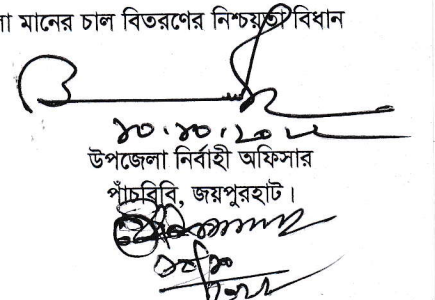 লা মানের চাল বিতরণের নিশ্চয়তা বিধান
১০.১০.২০১৮
উপজেলা নির্বাহী অফিসার
পাঁচবিবি, জয়পুরহাট।
১০/১০